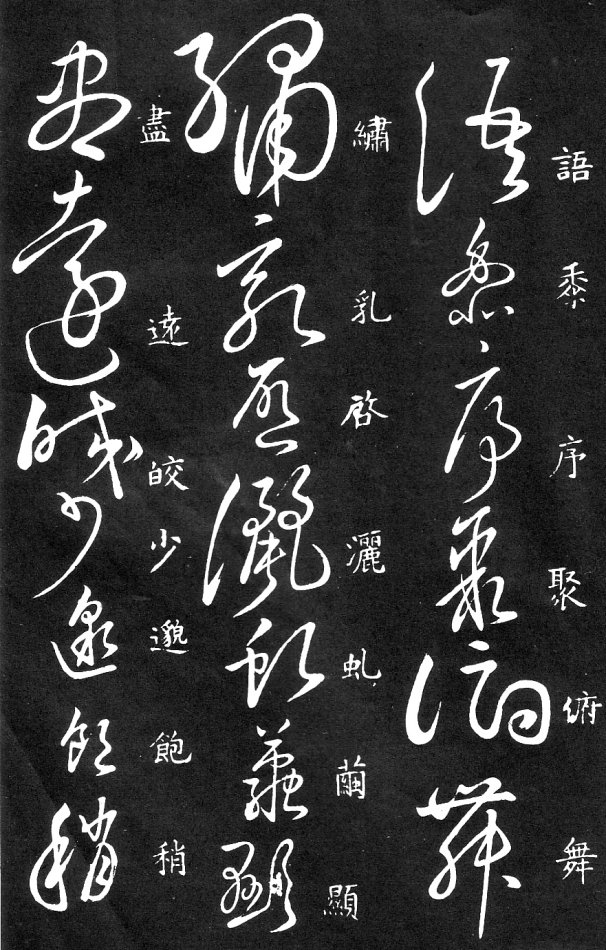 語黍序聚俯舞
繡乳啓灑虬繭顯
盡遠皎少邈飽稍